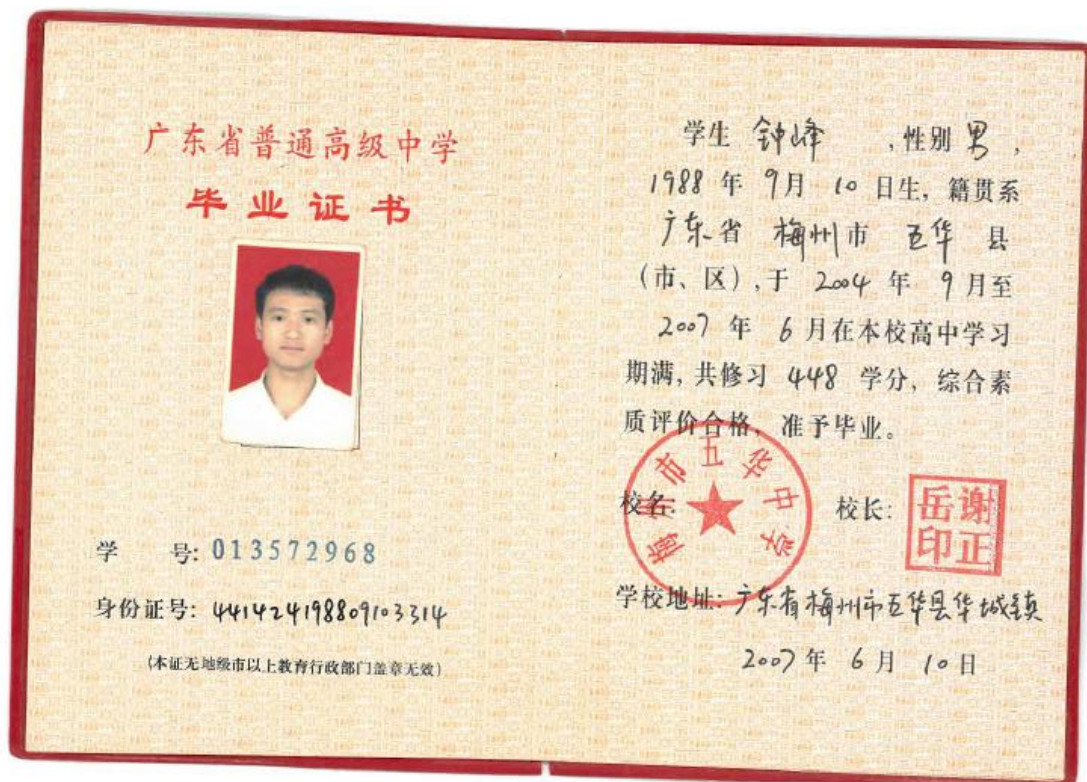 广东省普通高级中学
毕业证书
学 号: 013572968
身份证号: 441424198809103314
(本证无地级市以上教育行政部门盖章无效)
学生 钟峰 , 性别 男 ,
1988 年 9月 10 日生, 籍贯系
广东省 梅州市 五华 县
(市、区), 于 2004 年 9 月至
2007 年 6 月在本校高中学习
期满, 共修习 448 学分, 综合素
质评价合格, 准予毕业。
梅州市五华中学
校名:
校长:
谢正岳印
学校地址: 广东省梅州市五华县华城镇
2007 年 6 月 10 日